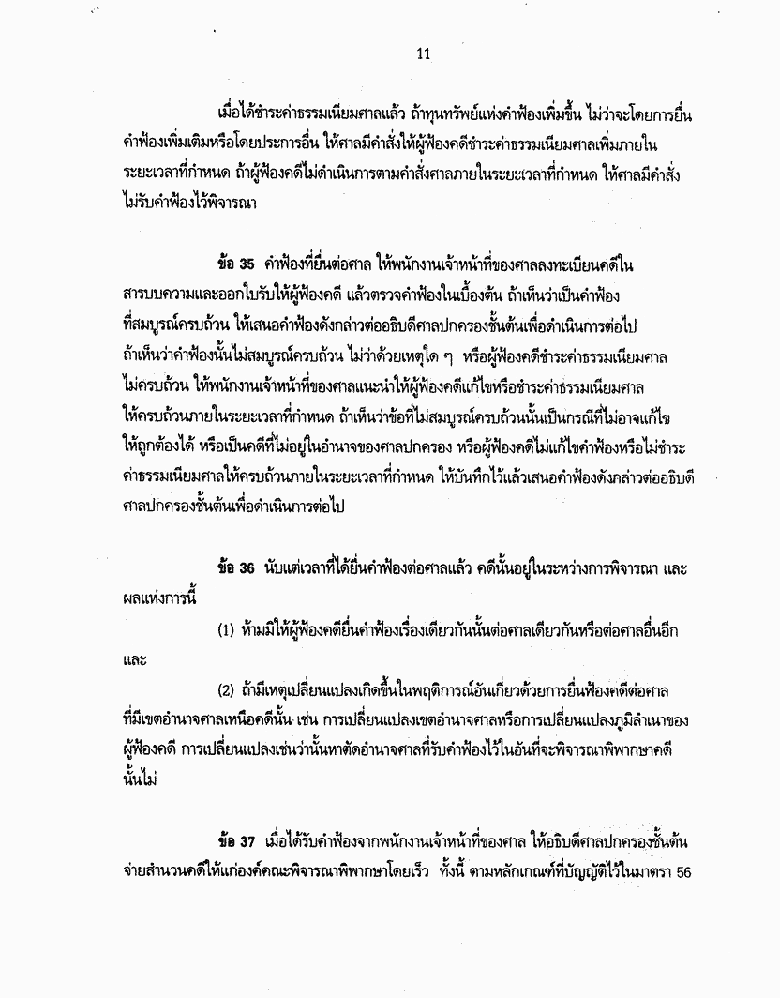 11
เมื่อได้ชำระค่าธรรมเนียมศาลแล้ว ถ้าทุนทรัพย์แห่งคำฟ้องเพิ่มขึ้น ไม่ว่าจะโดยการยื่น
คำฟ้องเพิ่มเติมหรือโดยประการอื่น ให้ศาลมีคำสั่งให้ผู้ฟ้องคดีชำระค่าธรรมเนียมศาลเพิ่มภายใน
ระยะเวลาที่กำหนด ถ้าผู้ฟ้องคดีไม่ดำเนินการตามคำสั่งศาลภายในระยะเวลาที่กำหนด ให้ศาลมีคำสั่ง
ไม่รับคำฟ้องไว้พิจารณา
ข้อ 35 คำฟ้องที่ยื่นต่อศาล ให้พนักงานเจ้าหน้าที่ของศาลลงทะเบียนคดีใน
สารบบความและออกใบรับให้ผู้ฟ้องคดี แล้วตรวจคำฟ้องในเบื้องต้น ถ้าเห็นว่าเป็นคำฟ้อง
ที่สมบูรณ์ครบถ้วน ให้เสนอคำฟ้องดังกล่าวต่ออธิบดีศาลปกครองชั้นต้นเพื่อดำเนินการต่อไป
ถ้าเห็นว่าคำฟ้องนั้นไม่สมบูรณ์ครบถ้วน ไม่ว่าด้วยเหตุใด ๆ หรือผู้ฟ้องคดีชำระค่าธรรมเนียมศาล
ไม่ครบถ้วน ให้พนักงานเจ้าหน้าที่ของศาลแนะนำให้ผู้ฟ้องคดีแก้ไขหรือชำระค่าธรรมเนียมศาล
ให้ครบถ้วนภายในระยะเวลาที่กำหนด ถ้าเห็นว่าข้อที่ไม่สมบูรณ์ครบถ้วนนั้นเป็นกรณีที่ไม่อาจแก้ไข
ให้ถูกต้องได้ หรือเป็นคดีที่ไม่อยู่ในอำนาจของศาลปกครอง หรือผู้ฟ้องคดีไม่แก้ไขคำฟ้องหรือไม่ชำระ
ค่าธรรมเนียมศาลให้ครบถ้วนภายในระยะเวลาที่กำหนด ให้บันทึกไว้แล้วเสนอคำฟ้องดังกล่าวต่ออธิบดี
ศาลปกครองชั้นต้นเพื่อดำเนินการต่อไป
ข้อ 36 นับแต่เวลาที่ได้ยื่นคำฟ้องต่อศาลแล้ว คดีนั้นอยู่ในระหว่างการพิจารณา และ
ผลแห่งการนี้
(1) ห้ามมิให้ผู้ฟ้องคดียื่นคำฟ้องเรื่องเดียวกันนั้นต่อศาลเดียวกันหรือต่อศาลอื่นอีก
และ
(2) ถ้ามีเหตุเปลี่ยนแปลงเกิดขึ้นในพฤติการณ์อันเกี่ยวด้วยการยื่นฟ้องคดีต่อศาล
ที่มีเขตอำนาจศาลเหนือคดีนั้น เช่น การเปลี่ยนแปลงเขตอำนาจศาลหรือการเปลี่ยนแปลงภูมิลำเนาของ
ผู้ฟ้องคดี การเปลี่ยนแปลงเช่นว่านั้นหาตัดอำนาจศาลที่รับคำฟ้องไว้ในอันที่จะพิจารณาพิพากษาคดี
นั้นไม่
ข้อ 37 เมื่อได้รับคำฟ้องจากพนักงานเจ้าหน้าที่ของศาล ให้อธิบดีศาลปกครองชั้นต้น
จ่ายสำนวนคดีให้แก่องค์คณะพิจารณาพิพากษาโดยเร็ว ทั้งนี้ ตามหลักเกณฑ์ที่บัญญัติไว้ในมาตรา 56